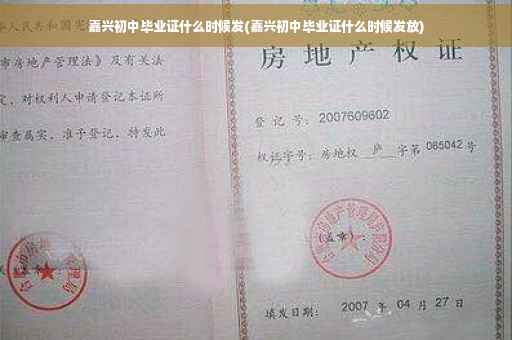 嘉兴初中毕业证什么时候发(嘉兴初中毕业证什么时候发放)
人民共和国宪
市房地产管理法》及有关法
定，对权利人申请登记本证所
审查属实，准予登记，特发此
房地产权证
登记号：2007609602
权证字号：房地权 庐 字第 085042 号
(盖章)：
填发日期： 2007 年 04 月 27 日